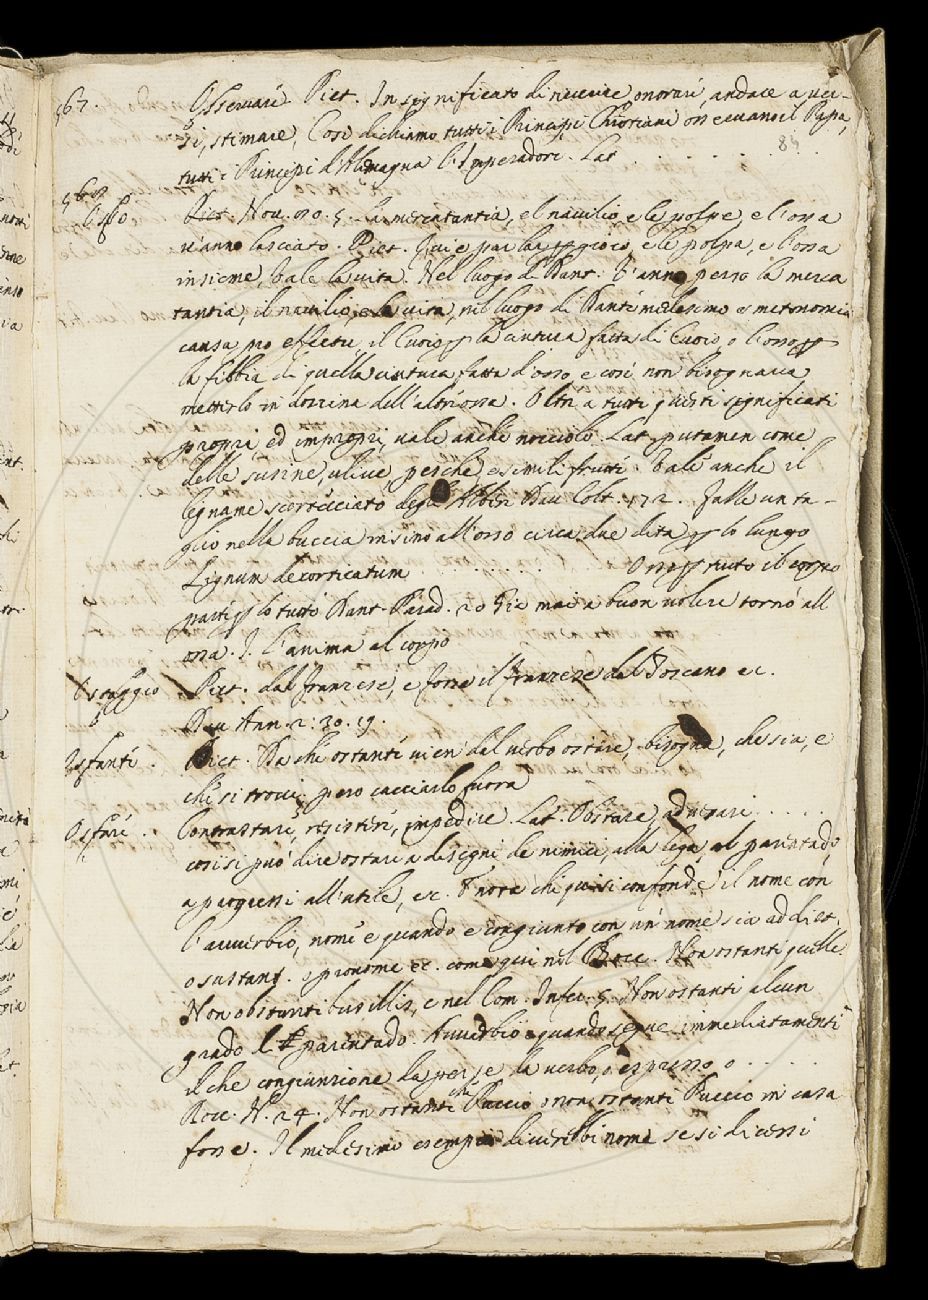 567. Osservare Pict. In significato di riverire, onorare, andare a ver-
si, stimare, Così diciamo tutti i Principi Christiani osservano il Papa,
84
tutti i Principi d'Alemagna l'Imperadore. Lat. . . . . .
568
Osso Pict. Nov. 020. 5. La mercatantia, el navilio e le polpe, e l'ossa
v'anno lasciato. Pict. Qui e parla per gioco, e le polpa, e l'ossa
insieme, vale la vita. Nel luogo di Dant. V'anno perso la merca
tantia, il navilio, e la vita, nel luogo di Dante medesimo e metonomia
causa pro effectu il Cuoio per la cintura fatta di Cuoio, e l'osso per
la fibbia di quella cintura fatta d'osso, e così non bisognava
metterlo in dozzina dell'altr'ossa. Oltr'a tutti questi significati
propri ed impropri, vale anche nocciolo. Lat. putamen come
delle susine, ulive, pesche, e simili frutti. Vale anche il
legname scortecciato degli Albori Dav. Colt. 172. Falle un ta-
glio nella buccia insino all'osso circa due dita per lo lungo
Lignum decorticatum . . . . . . Ossa per tutto il corpo
parte per lo tutto Dant. Parad. 20 Gie mai a buon volere tornò all
ossa. I. l'anima al corpo
Ostaggio Pict. dal franzese, e forse il franzese dal Toscano ec.
Dav. Ann. 2: 30. 19.
Ostante. Pict. Da che ostante vien dal verbo ostare, bisogna, che sia, e
che si trovi: però cacciarlo fuora
Ostare. Contrastare, resistere, impedire. Lat. Obstare, adversari . . . . .
così si può dire ostare a disegni de nimici, alla lega, al parentado,
a progressi all'utile, ec. E nota che qui si confonde il nome con
l'avverbio, nome è quando è congiunto con un nome sia addiet.
o sustant. o pronome ec. come qui nel Bocc. Non ostanti quelle
Non obstantibus illis, e nel Com. Infer. 5. Non ostanti alcun
grado di parentado. Avverbio è quando segue immediatamente
il che congiunzione da per se la verbo, espresso o . . . . .
Bocc. N. 24. Non ostante che Puccio non ostante Puccio in casa
fosse. Il medesimo esempio diverebbe nome se si dicessi